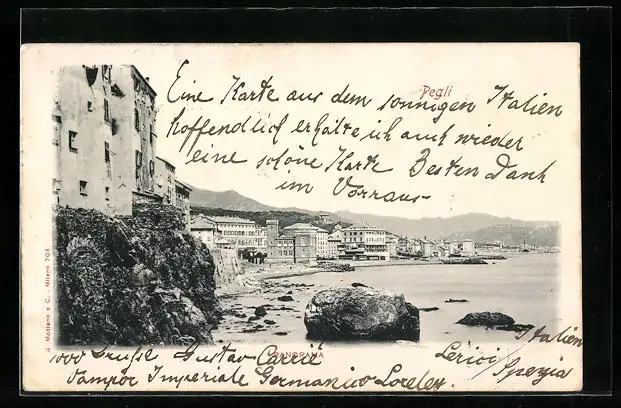 Pegli
Eine Karte aus dem sonnigen Italien
Hoffendlich erhalte ich auch wieder
eine schöne Karte Besten Dank
im Vorraus-
G. Modiano e C. - Milano 703
PANORAMA
1000 Grüße Gustav Carrié
Vampör Imperiale Germanico Loreley.
Lerici / Italien
Spezia